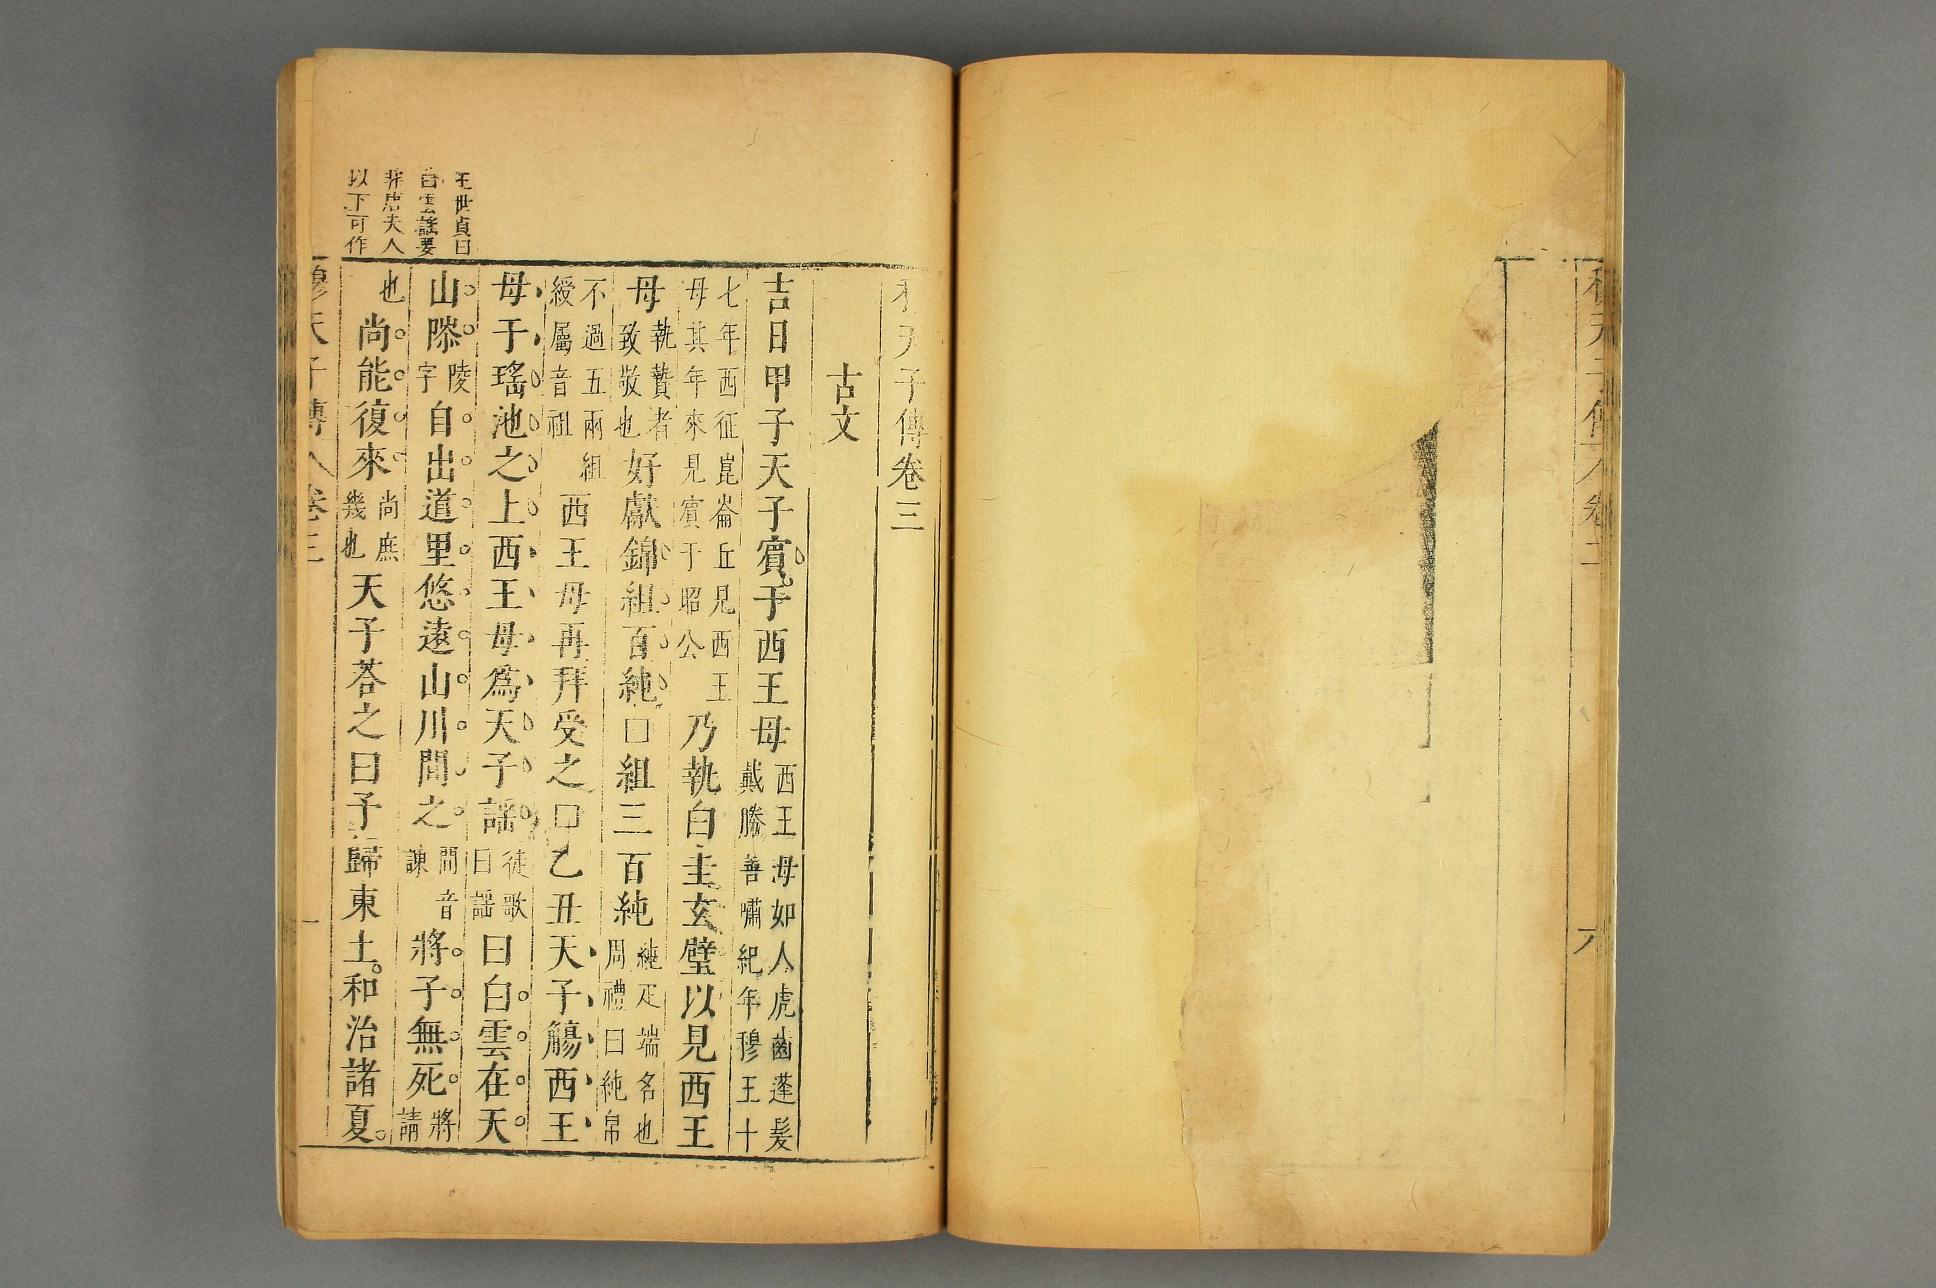 穆天子傳 卷二
六
穆天子傳卷三
古文
吉日甲子天子賓于西王母西王母如人虎齒蓬髮戴勝善嘯紀年穆王十
七年西征崑崙丘見西王母其年來見賓于昭公乃執白圭玄璧以見西王
母執贄者致敬也好獻錦組百純□組三百純純疋端名也周禮曰純帛
不過五兩組綬屬音祖西王母再拜受之□乙丑天子觴西王
母于瑤池之上西王母爲天子謠徒歌曰謠曰白雲在天
山䧙陵字自出道里悠遠山川間之間音諫將子無死將請
也尚能復來尚庶幾也天子荅之曰予歸東土和治諸夏
王世貞曰
白雲謠要
非唐夫人
以下可作
穆天子傳 卷三
一